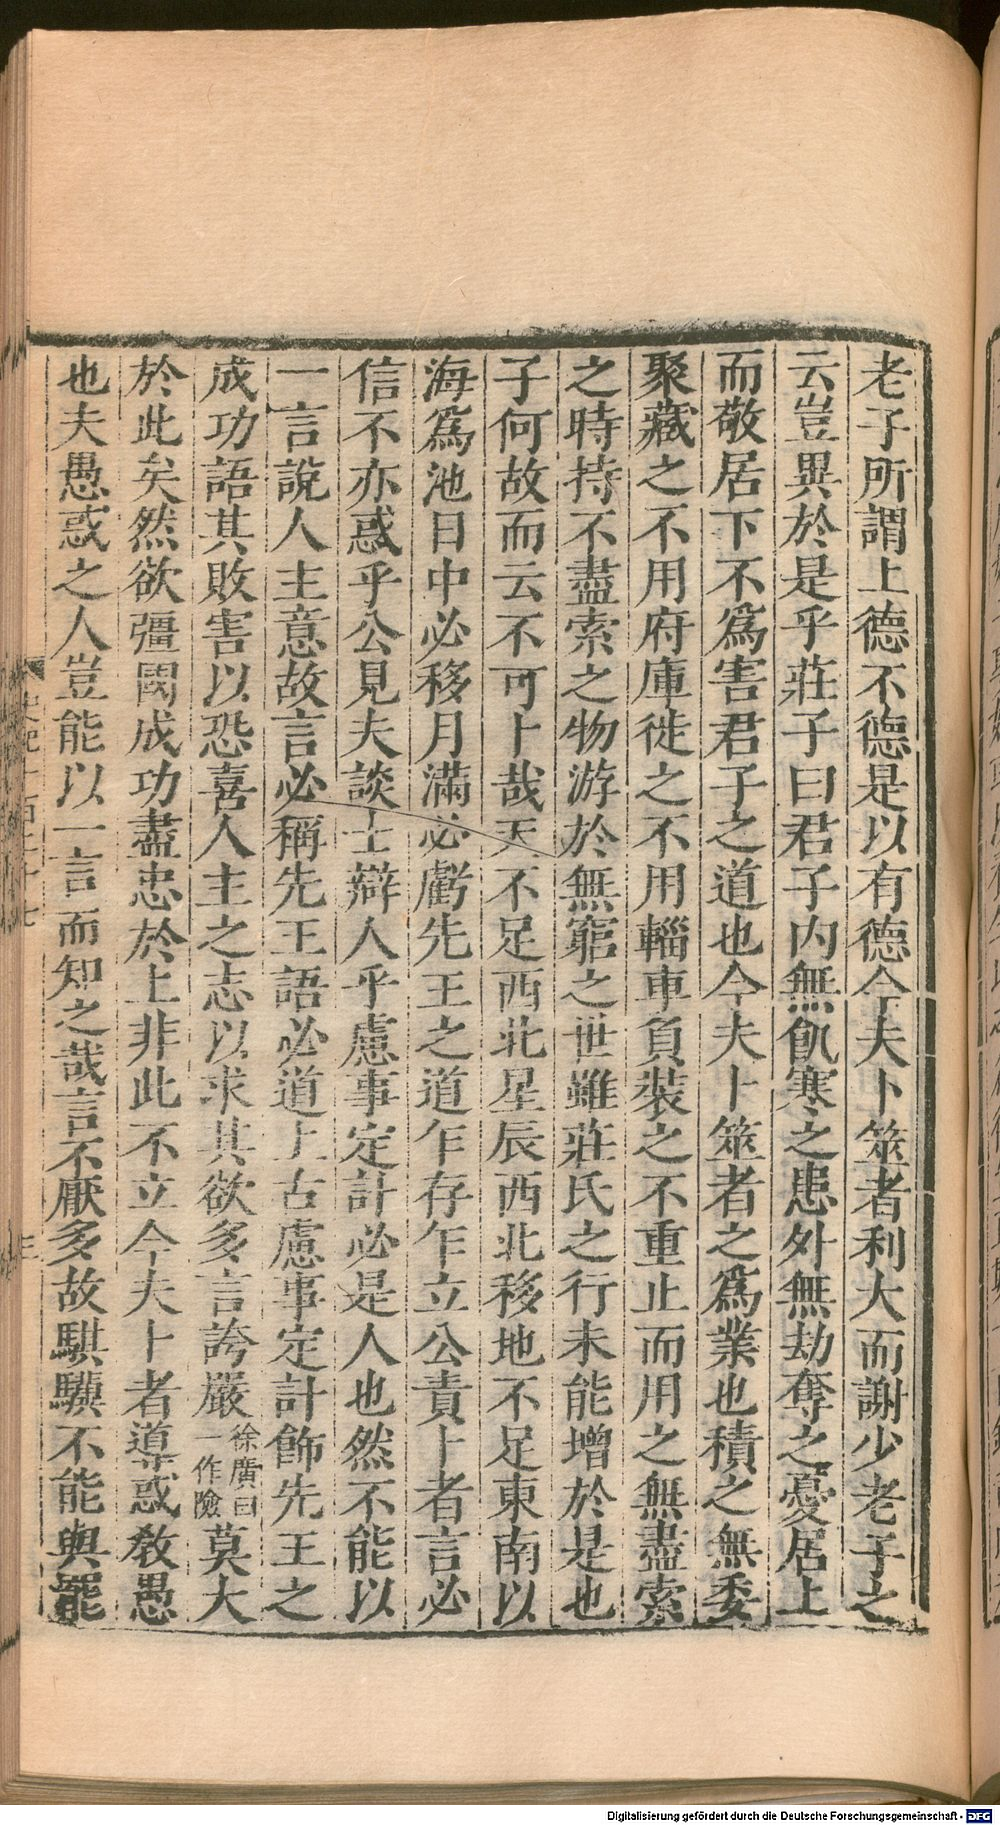 老子所謂上德不德是以有德今夫卜筮者利大而謝少老子之
云豈異於是乎莊子曰君子內無飢寒之患外無劫奪之憂居上
而敬居下不爲害君子之道也今夫卜筮者之爲業也積之無委
聚藏之不用府庫徙之不用輜車負裝之不重止而用之無盡索
之時持不盡索之物游於無窮之世雖莊氏之行未能增於是也
子何故而云不可卜哉天不足西北星辰西北移地不足東南以
海爲池日中必移月滿必虧先王之道乍存乍立公責卜者言必
信不亦惑乎公見夫談士辯人乎慮事定計必是人也然不能以
一言說人主意故言必稱先王語必道上古慮事定計飾先王之
成功語其敗害以恐喜人主之志以求其欲多言誇嚴徐廣曰一作險莫大
於此矣然欲彊國成功盡忠於上非此不立今夫卜者導惑敎愚
也夫愚惑之人豈能以一言而知之哉言不厭多故騏驥不能與罷
史記一百二十七
三
Digitalisierung gefördert durch die Deutsche Forschungsgemeinschaft - DFG